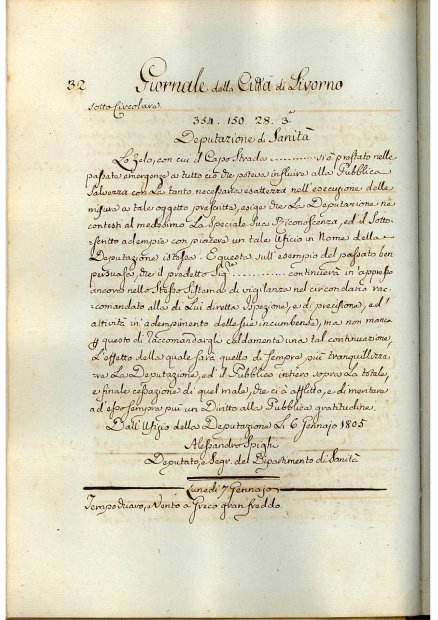 32 Giornale della Città di Livorno
sotto Circolare
354. 150. 28. 3.a
Deputazione di Sanità
Lo zelo, con cui il Capo Strada ............ si è prestato nelle
passate emergenze a tutto ciò che poteva influire alla Pubblica
Salvezza con la tanto necessaria esattezza nell'esecuzione delle
misure a tale oggetto prescritte, esige che La Deputazione ne
contesti al medesimo La Speciale Sua Riconoscenza, ed il Sotto-
scritto adempie con piacere un tale Ufficio in Nome della
Deputazione istessa. E questa sull'esempio del passato ben
persuasa, che il predetto Sig.re ............ continuerà in appresso
ancora nello Stesso Sistema di vigilanza nel circondario rac-
comandato alla di Lui diretta Ispezione, e di precisione, ed
attività in adempimento delle sue incumbenze, ma non manca
questo di raccomandargli caldamente una tal continuazione,
L'effetto della quale sarà quello di sempre più tranquillizza-
re La Deputazione, ed il Pubblico intiero sopra La totale,
e finale cessazione di quel male, che ci à afflitto, e di meritare
ad esso sempre più un Diritto alla Pubblica gratitudine.
Dall'Ufizio della Deputazione Li 6 Gennajo 1805
Alessandro Spighi
Deputato, e Segr. del Dipartimento di Sanità
Lunedì 7 Gennajo
Tempo chiaro, e Vento a Greco gran freddo.